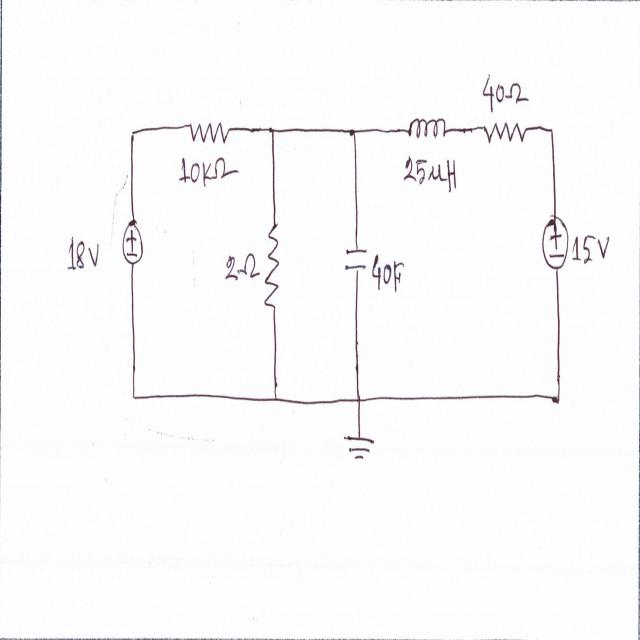 40Ω
10KΩ
25μH
18V
±
2Ω
40F
±
15V